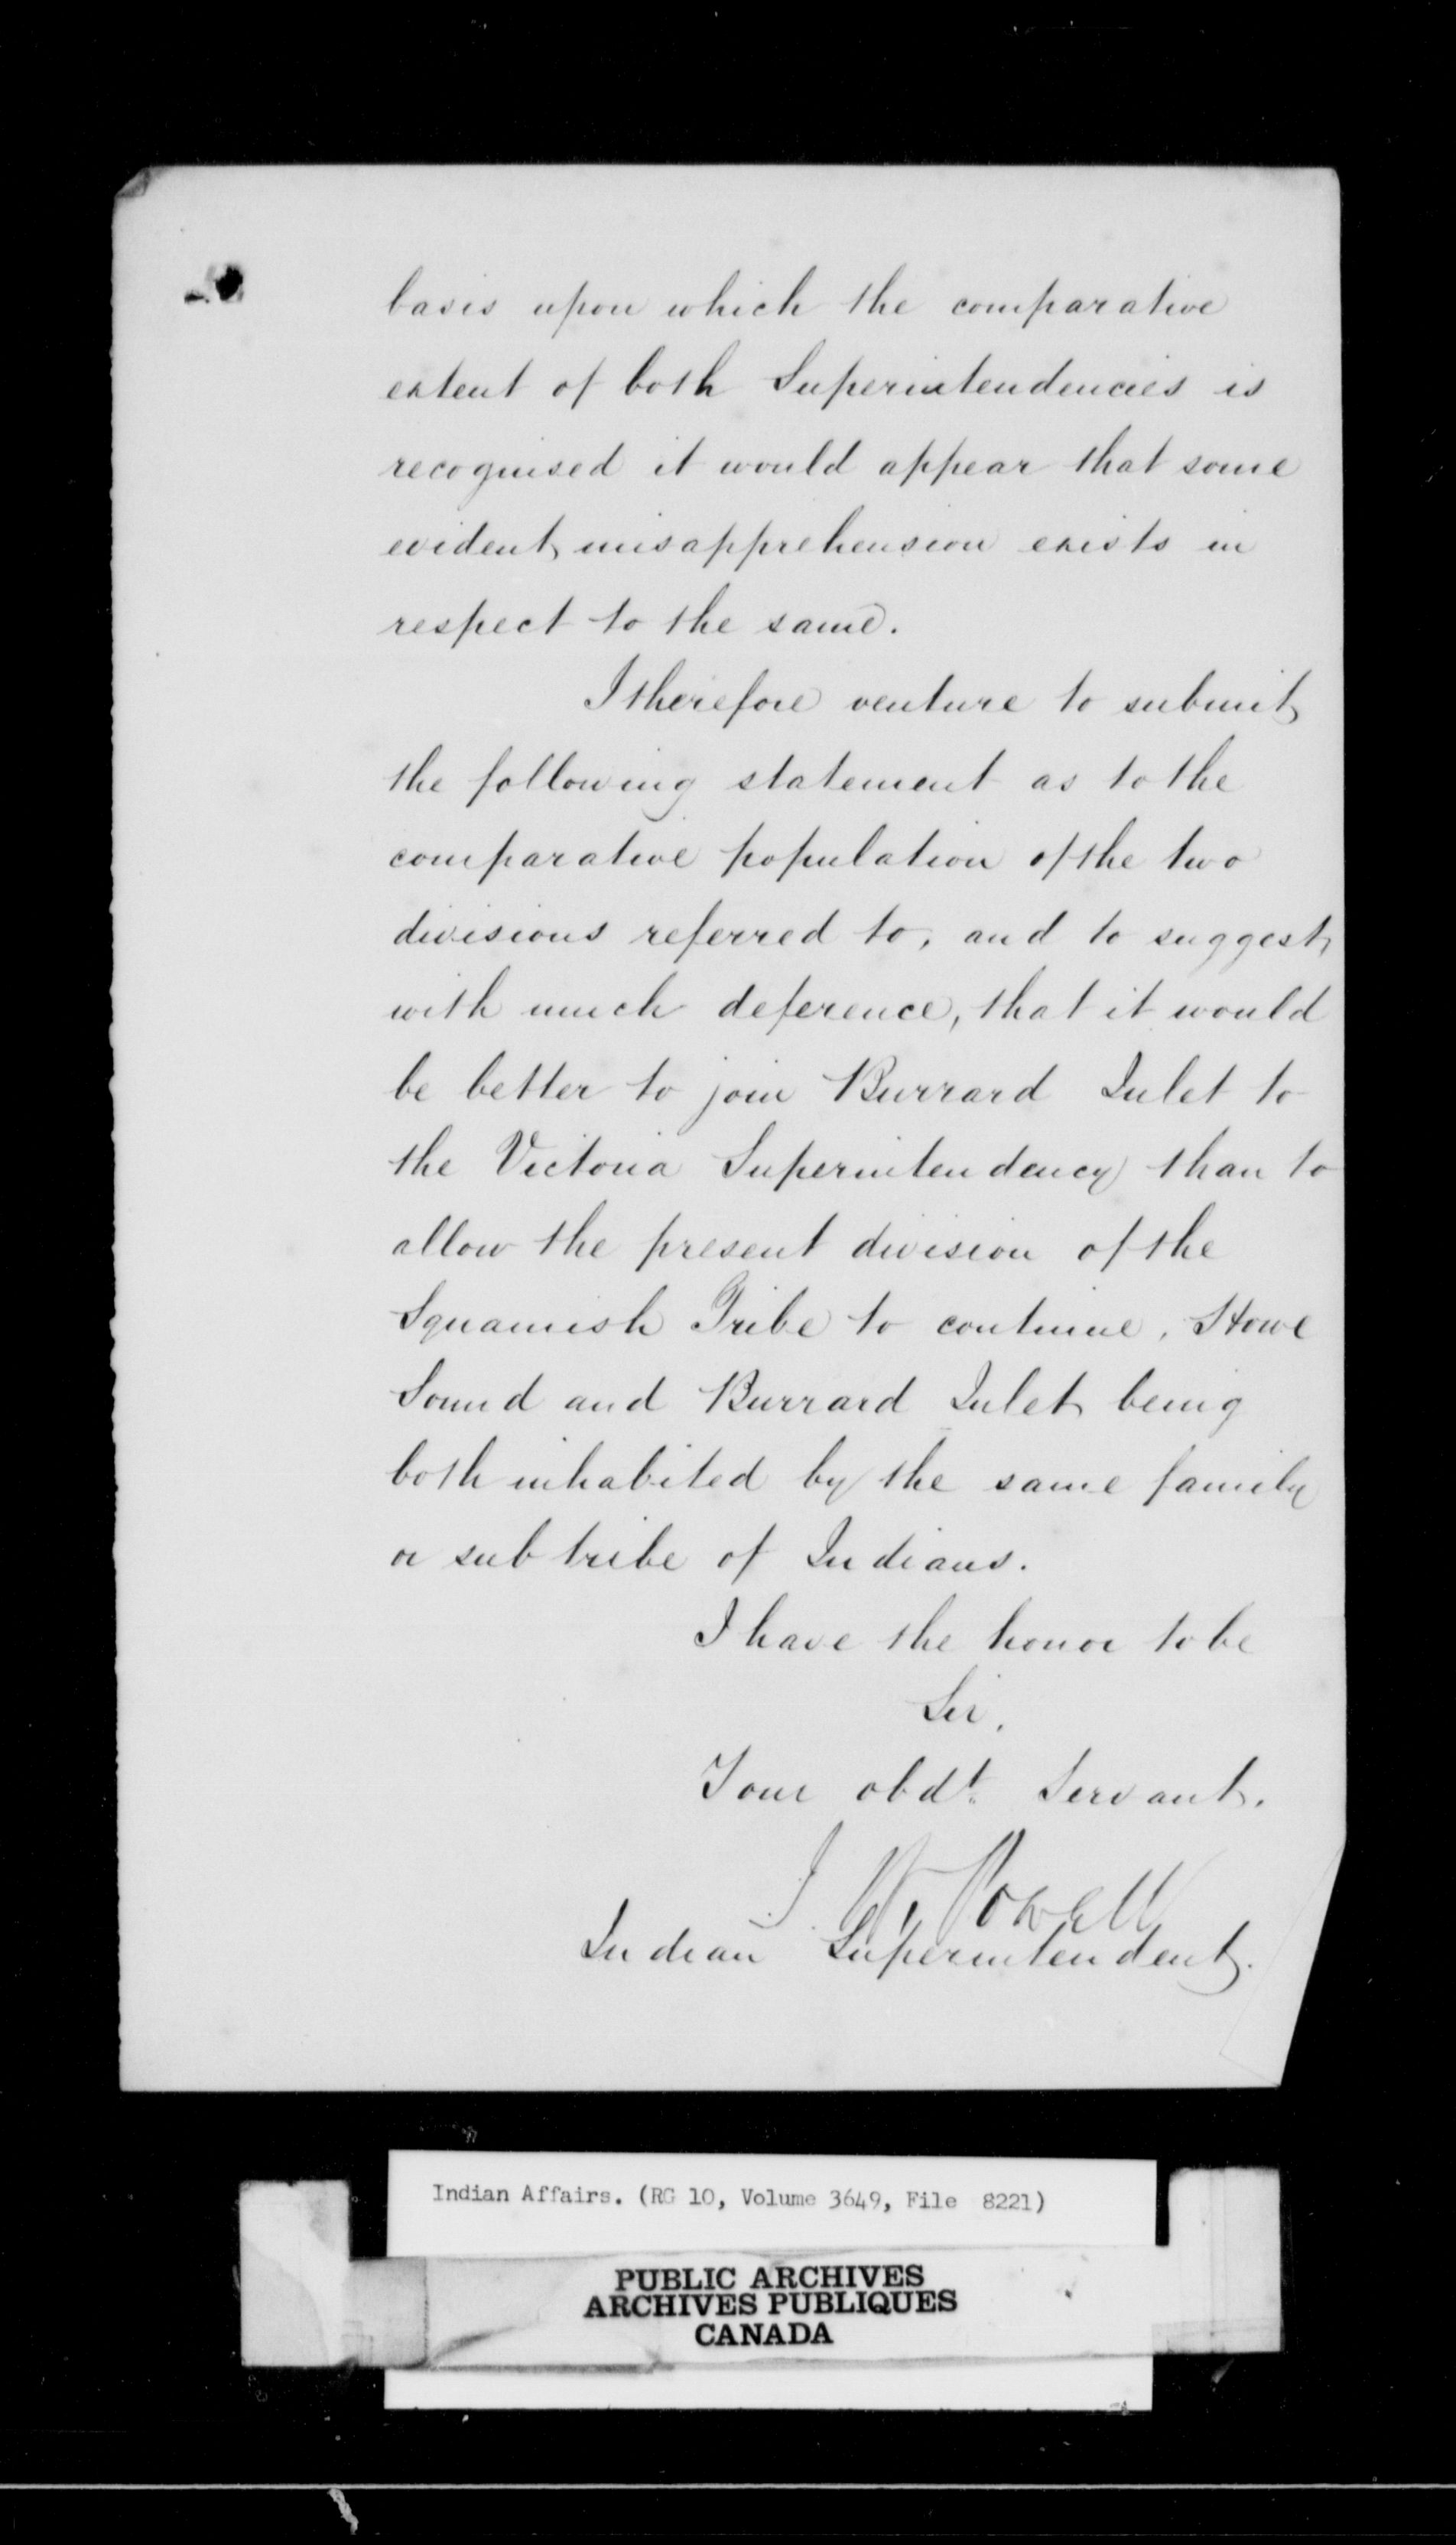 basis upon which the comparative
extent of both Superintendencies is
recognised it would appear that some
evident misapprehension exists in
respect to the same.
I therefore venture to submit
the following statement as to the
comparative population of the two
divisions referred to, and to suggest,
with much deference, that it would
be better to join Burrard Inlet to
the Victoria Superintendency than to
allow the present division of the
Squamish Tribe to continue, Howe
Sound and Burrard Inlet being
both inhabited by the same family
or sub tribe of Indians.
I have the honor to be
Sir,
Your obdt. Servant.
I. W. Powell
Indian Superintendent.
Indian Affairs. (RG 10, Volume 3649, File 8221)
PUBLIC ARCHIVES
ARCHIVES PUBLIQUES
CANADA